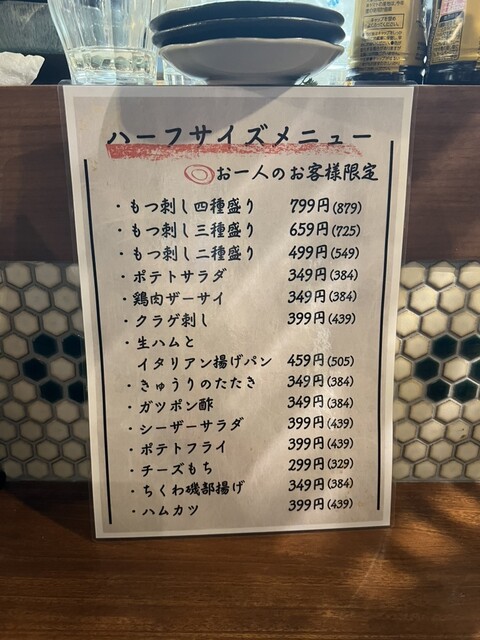 ハーフサイズメニュー
お一人のお客様限定
・もつ刺し四種盛り 799円(879)
・もつ刺し三種盛り 659円(725)
・もつ刺し二種盛り 499円(549)
・ポテトサラダ 349円(384)
・鶏肉ザーサイ 349円(384)
・クラゲ刺し 399円(439)
・生ハムと
イタリアン揚げパン 459円(505)
・きゅうりのたたき 349円(384)
・ガツポン酢 349円(384)
・シーザーサラダ 399円(439)
・ポテトフライ 399円(439)
・チーズもち 299円(329)
・ちくわ磯部揚げ 349円(384)
・ハムカツ 399円(439)